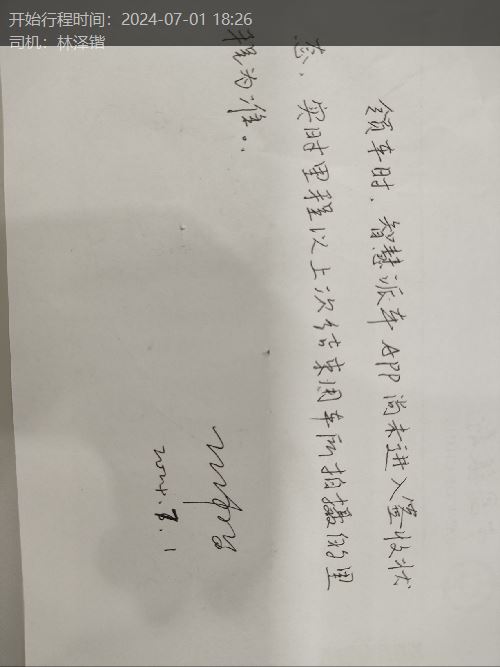 开始行程时间：2024-07-01 18:26
司机：林泽锴
领车时，智慧派车APP尚未进入签收状
态，实时里程以上次结束用车所拍摄的里
程为准。
2024.7.1